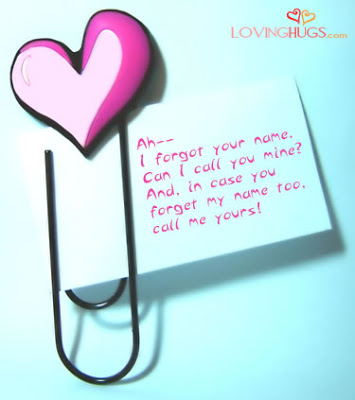 LOVINGHUGS.com
Ah--
I forgot your name,
Can I call you mine?
And, in case you
forget my name too,
call me yours!